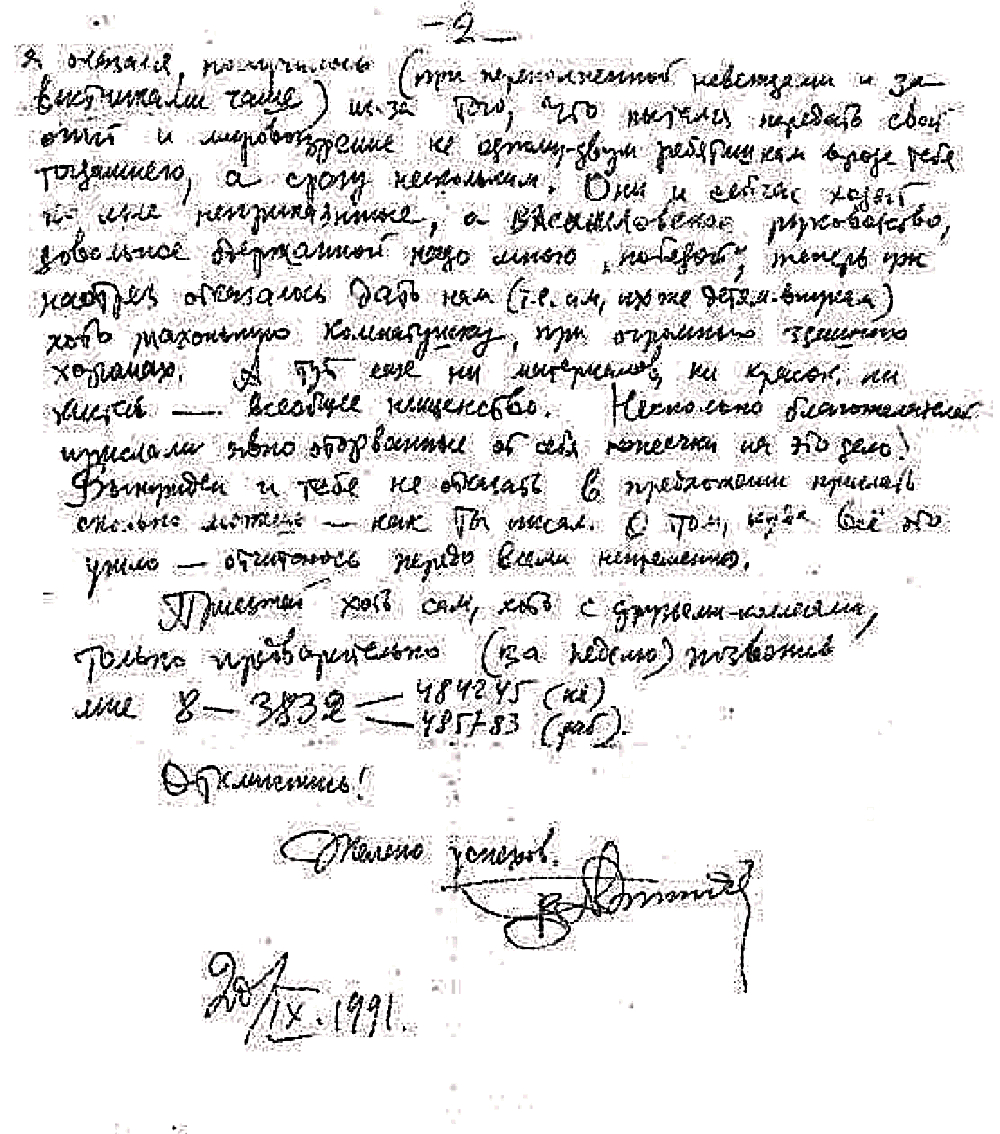 — 2 —
я оказался, получилось (при переполненной невеждами и за-
вистниками чаше) из-за того, что пытался передать свой
опыт и мировоззрение не одному-двум ребятишкам вроде тебя
тогдашнего, а сразу нескольким. Они и сейчас ходят
ко мне неприкаянные, а ВАСХНИЛовское руководство,
довольное одержанной надо мною „победой", теперь уж
наотрез отказалось дать нам (т.е. им, их же детям-внукам)
хоть махонькую комнатушку, при огромных здешних
хоромах. А тут еще ни материалов, ни красок, ни
кистей — всеобщее нищенство. Несколько благожелателей
прислали явно оторванные от себя копеечки на это дело!
Вынужден и тебе не отказать в предложении прислать
сколько можешь — как ты писал. О том, куда всё это
ушло — отчитаюсь передо всеми непременно.
Приезжай хоть сам, хоть с друзьями-коллегами,
только предварительно (за неделю) позвонив
мне 8—3832 — 484245
— 485783 (раб).
Откликнись!
Желаю успехов.
20/IX.1991.